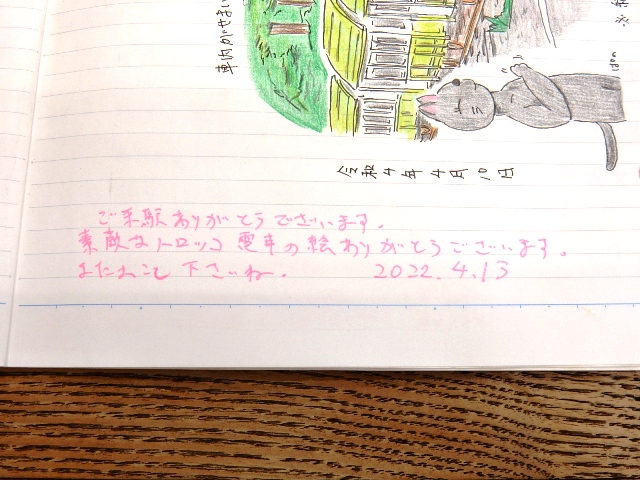 車内がせまい
ぱの
令和4年4月10日
ご来駅ありがとうございます。
素敵なトロッコ電車の絵ありがとうございます。
またおこし下さいね。 2022.4.13